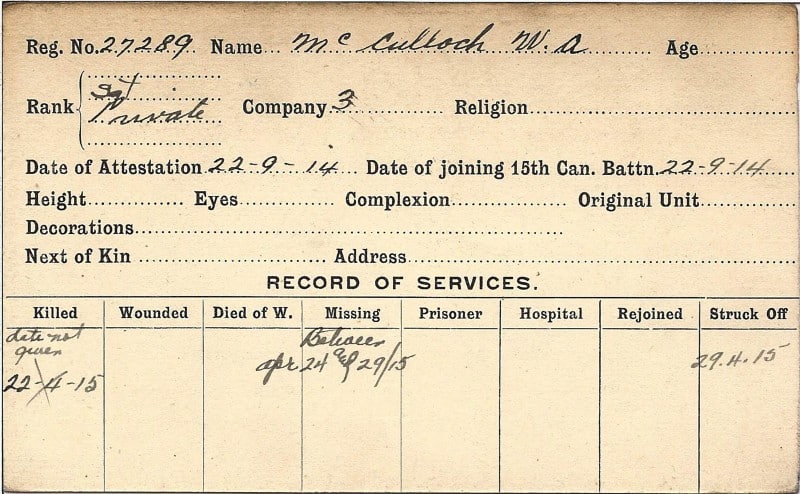 Reg. No. 27289 Name Mc Culloch W. A Age
Sgt
Rank Private Company 3 Religion
Date of Attestation 22-9-14 Date of joining 15th Can. Battn. 22-9-14
Height Eyes Complexion Original Unit
Decorations
Next of Kin Address
RECORD OF SERVICES.
Killed Wounded Died of W. Missing Prisoner Hospital Rejoined Struck Off
date not Between
given apr 24 & 29/15 29.4.15
22-4-15